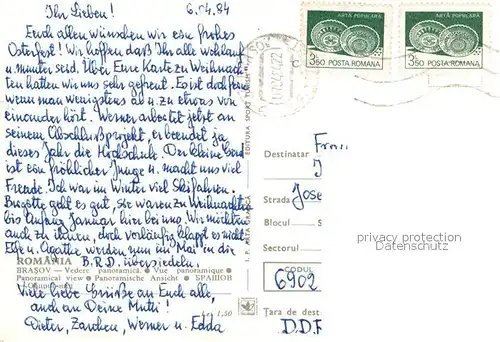 6.04.84
Ihr Lieben!
Euch allen wünschen wir ein frohes
Osterfest! Wir hoffen daß Ihr alle wohlauf
u. munter seid. Über Eure Karte zu Weihnach-
ten hatten wir uns sehr gefreut. Es ist doch fein
wenn man wenigstens ab u. zu etwas von-
einander hört. Werner arbeitet jetzt an
seinem Abschlußprojekt, er beendet ja
dieses Jahr die Hochschule. Der kleine
ist ein fröhlicher Junge u. macht uns viel
Freude. Ich war im Winter viel Skifahren.
geht es gut, sie waren zu Weihnachten
bis Anfang Januar hier bei uns. Wir möchten
auch zu ihnen, doch vorläufig klappt es nicht
u. Agathe werden nun im Mai in die
B.R.D. übersiedeln.
ROMÂNIA
BRAȘOV — Vedere panoramică ● Vue panoramique ●
Panoramical view ● Panoramische Ansicht ● БРАШОВ
Viele liebe Grüße an Euch alle,
auch an Deine Mutti!
Lei 1,50
Dieter, Werner u. Edda
I. P. ARTA GRAFICĂ
EDITURA SPORT TURISM
ARTĂ POPULARĂ
3,50 POSTA ROMANA
ARTĂ POPULARĂ
3,50 POSTA ROMANA
Destinatar
Strada Jose
Blocul S
Sectorul
privacy protection
Datenschutz
CODUL
6902
Țara de dest
D.D.R